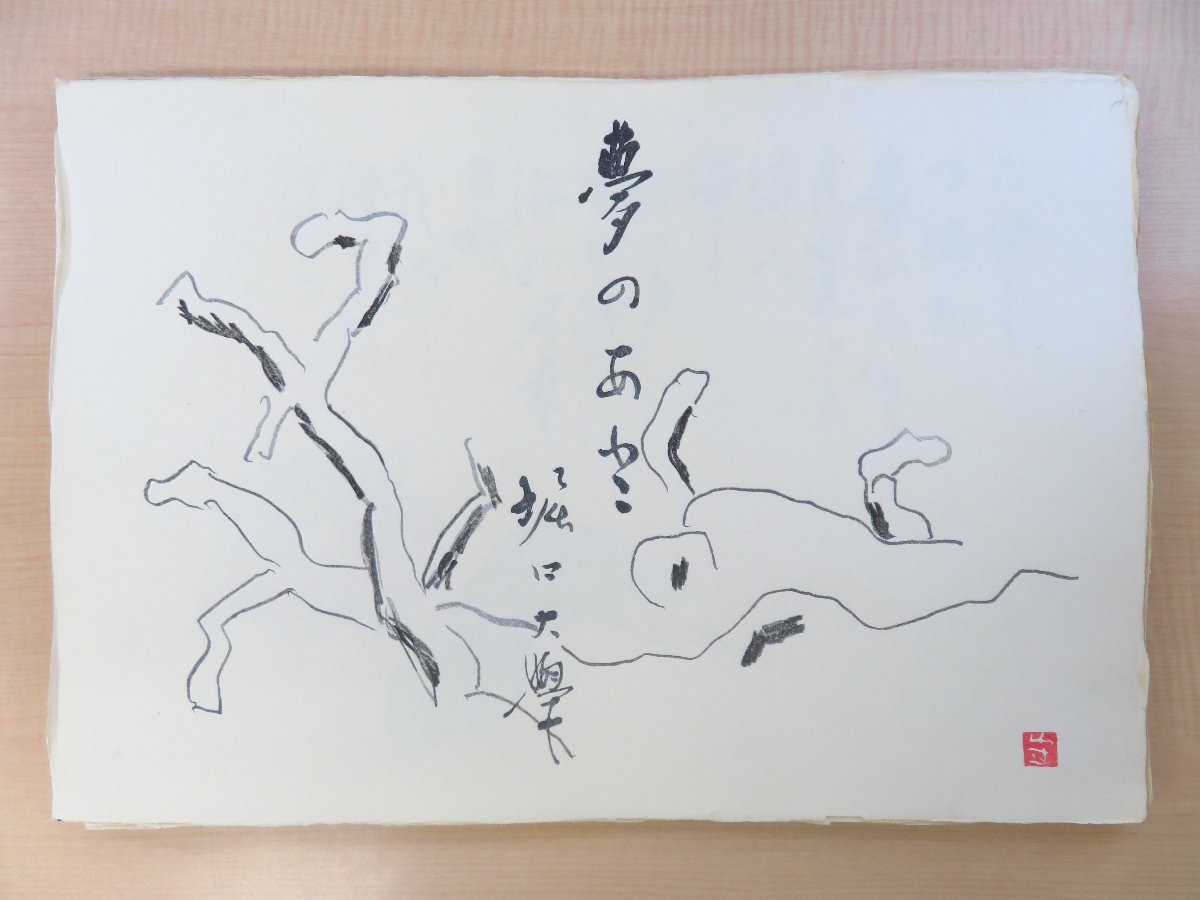 夢のあと
堀口大學